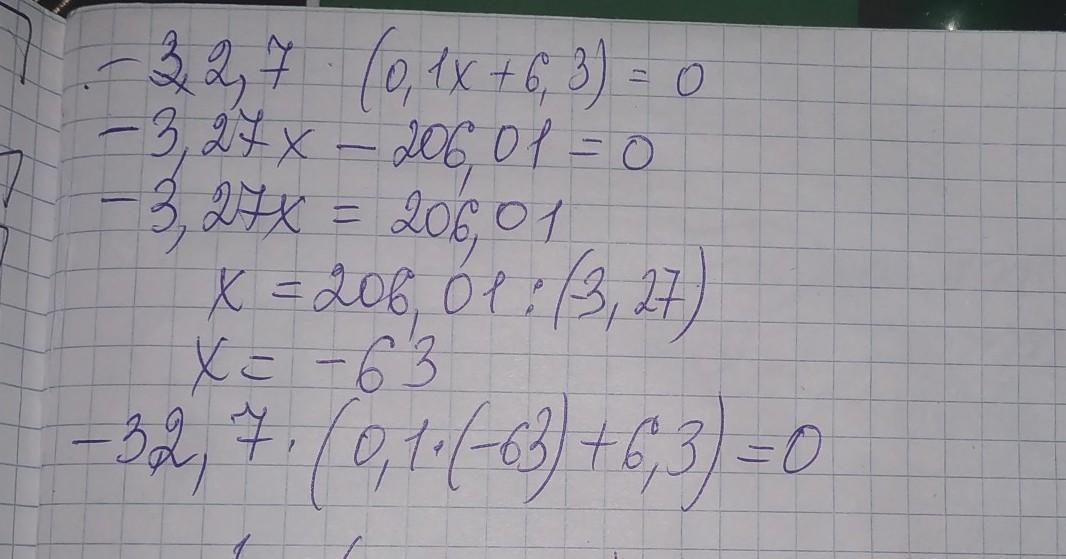 -32,7 · (0,1x+6,3) = 0
-3,27x - 206,01 = 0
-3,27x = 206,01
x = 206,01 : (3,27)
x = -63
-32,7 · (0,1·(-63)+6,3) = 0